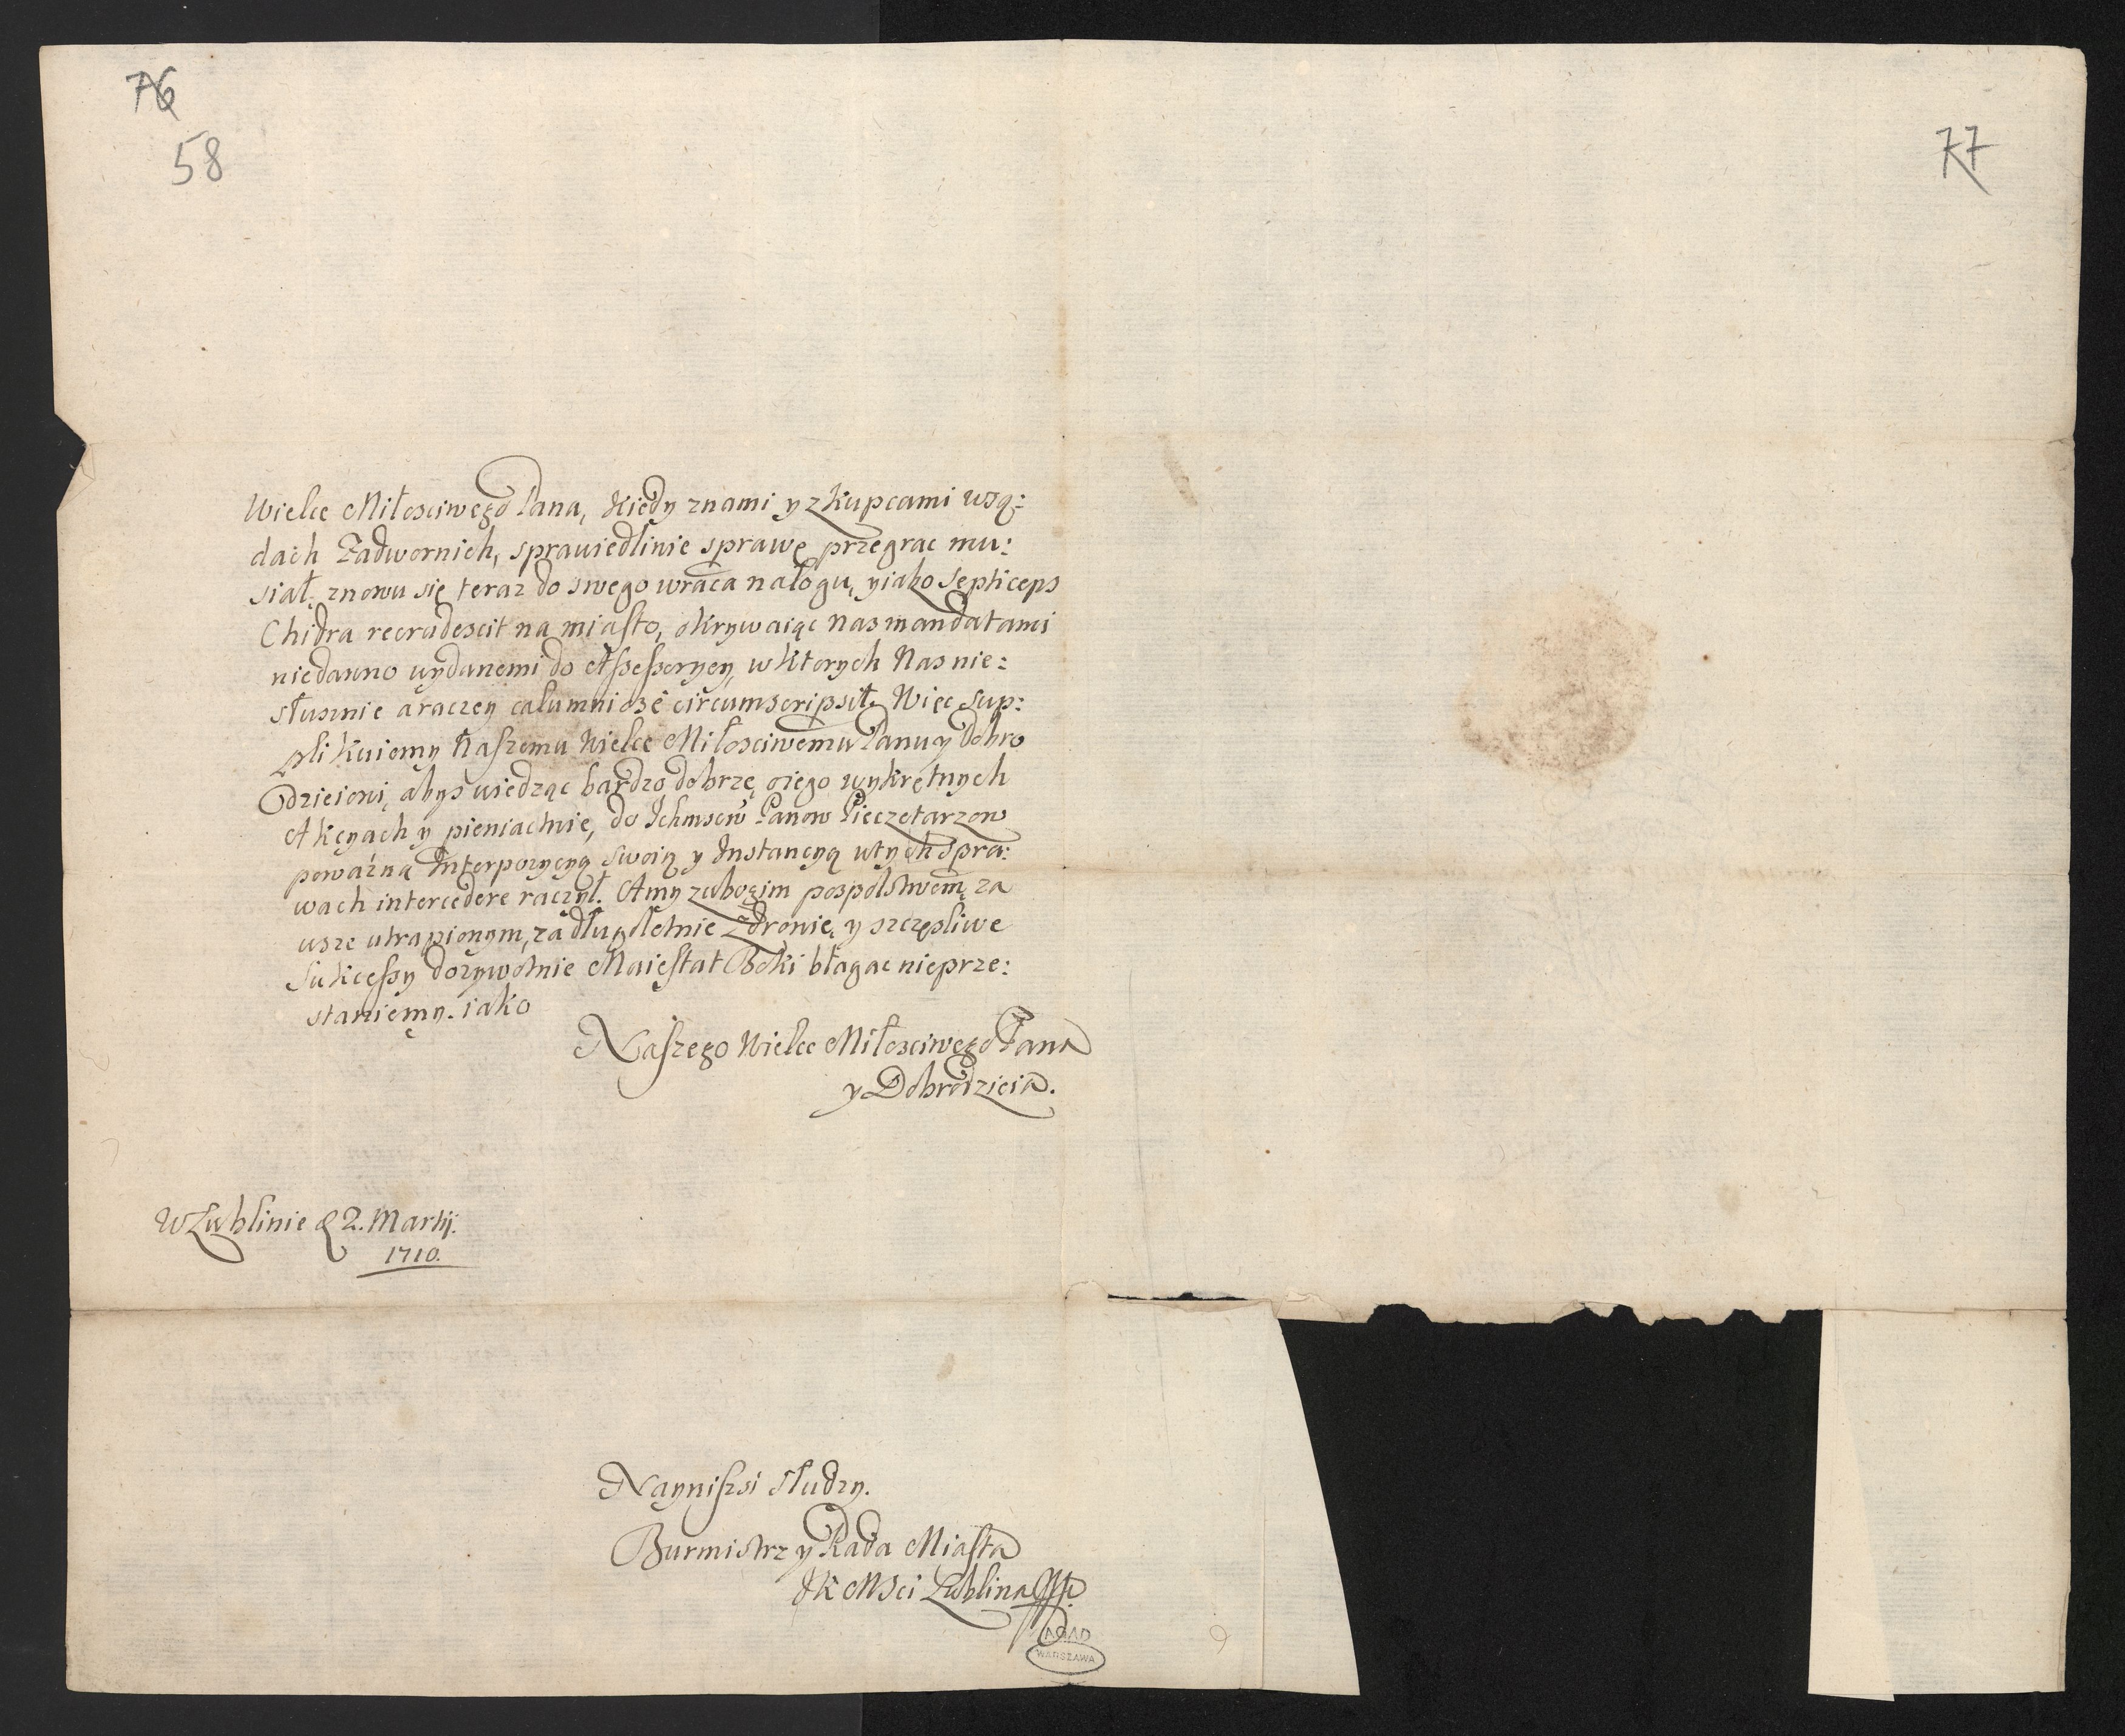 76
58
77
Wielce Miłosciwego Pana, kiedy znami y z kupcami wsą:
dach Zadwornich, sprawiedlinie sprawę przegrac mu:
siał, znowu się teraz do swego wraca nałogu, y iako Septiceps
Chidra recrudescit na miasto, okrywaiąc nas mandatami
niedawno wydanemi do Assessoryey, w ktorych Nas nie:
słusznie a raczey calumniosè circumscripsit. Więc sup:
plikuiemy Naszemu Wielce Miłosciwemu Panu y Dobro
dzieiowi, abys wiedząc bardzo dobrze, oiego wykrętnych
Akcyach y pieniactwie, do Ichmsciow Panow Pieczętarzow
poważną Interpozycyą swoią y Instancyą wtych spra:
wach intercedere raczył. A my z ubogim pospolstwem, za
wsze utrapionym, za długoletnie Zdrowie, y szczęsliwe
Sukcessy dozywotnie Maiestat Boki błagac nieprze:
staniemy. iako
Naszego Wielce Miłosciwego Pana
y Dobrodzieia.
W Lublinie d 2. Martij.
1710.
Naynissi słudzy.
Burmistrz y Rada Miasta
JK Msci Lublina
AGAD
WARSZAWA